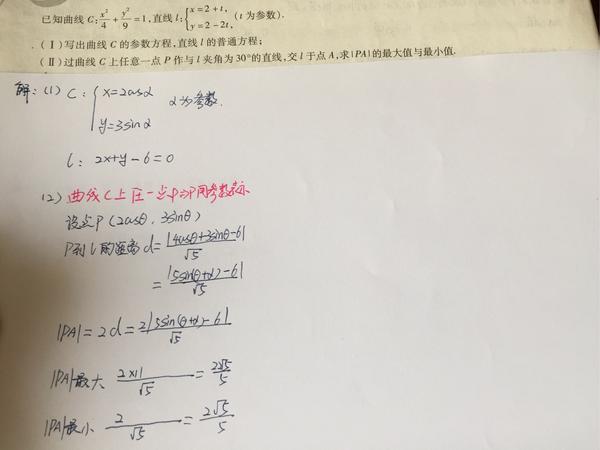 已知曲线 C: x²/4 + y²/9 = 1, 直线 l: { x=2+t, y=2-2t, (t 为参数).
(Ⅰ)写出曲线 C 的参数方程,直线 l 的普通方程;
(Ⅱ)过曲线 C 上任意一点 P 作与 l 夹角为 30°的直线,交 l 于点 A,求|PA|的最大值与最小值.
解:(1) C: { x=2cosα
α为参数.
y=3sinα
l: 2x+y-6=0
(2) 曲线C上任一点P⇒P用参数表示
设点P(2cosθ, 3sinθ)
P到l的距离 d = |4cosθ+3sinθ-6| / √5
= |5sin(θ+α)-6| / √5
|PA| = 2d = 2|5sin(θ+α)-6| / √5
|PA|最大 2×11 / √5 = 22√5 / 5
|PA|最小 2 / √5 = 2√5 / 5